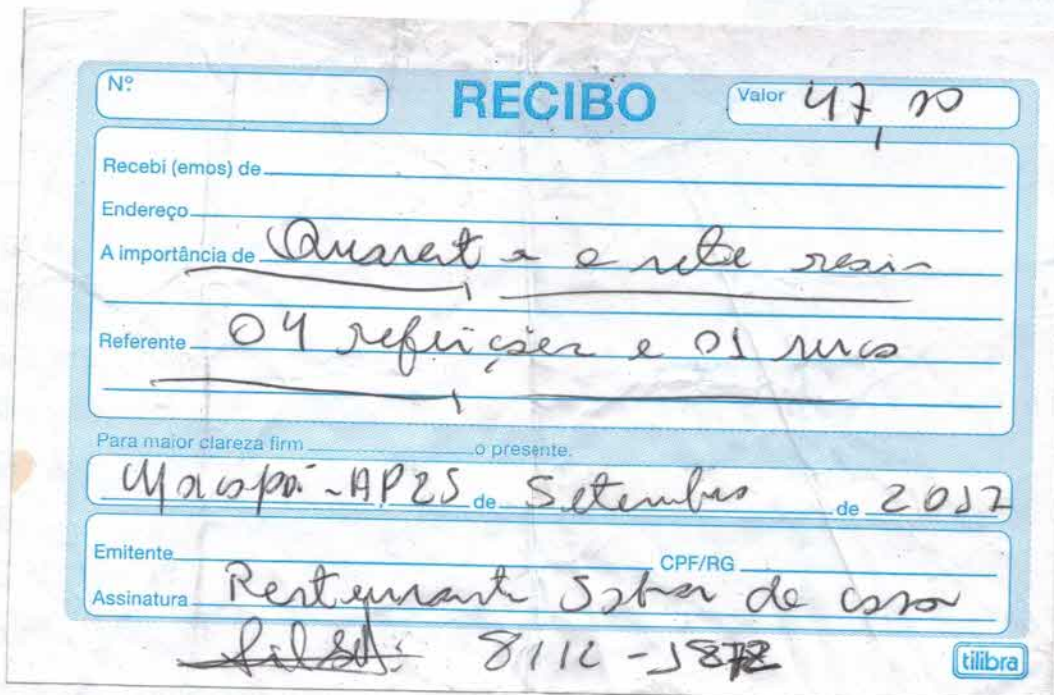 Nº RECIBO Valor 47,00
Recebi (emos) de
Endereço
A importância de Quarenta e sete reais
Referente 04 refeições e 01 suco
Para maior clareza firm o presente.
Macapá-AP 25 de Setembro de 2017
Emitente CPF/RG
Assinatura Restaurante Sabor de casa
8112-
tilibra